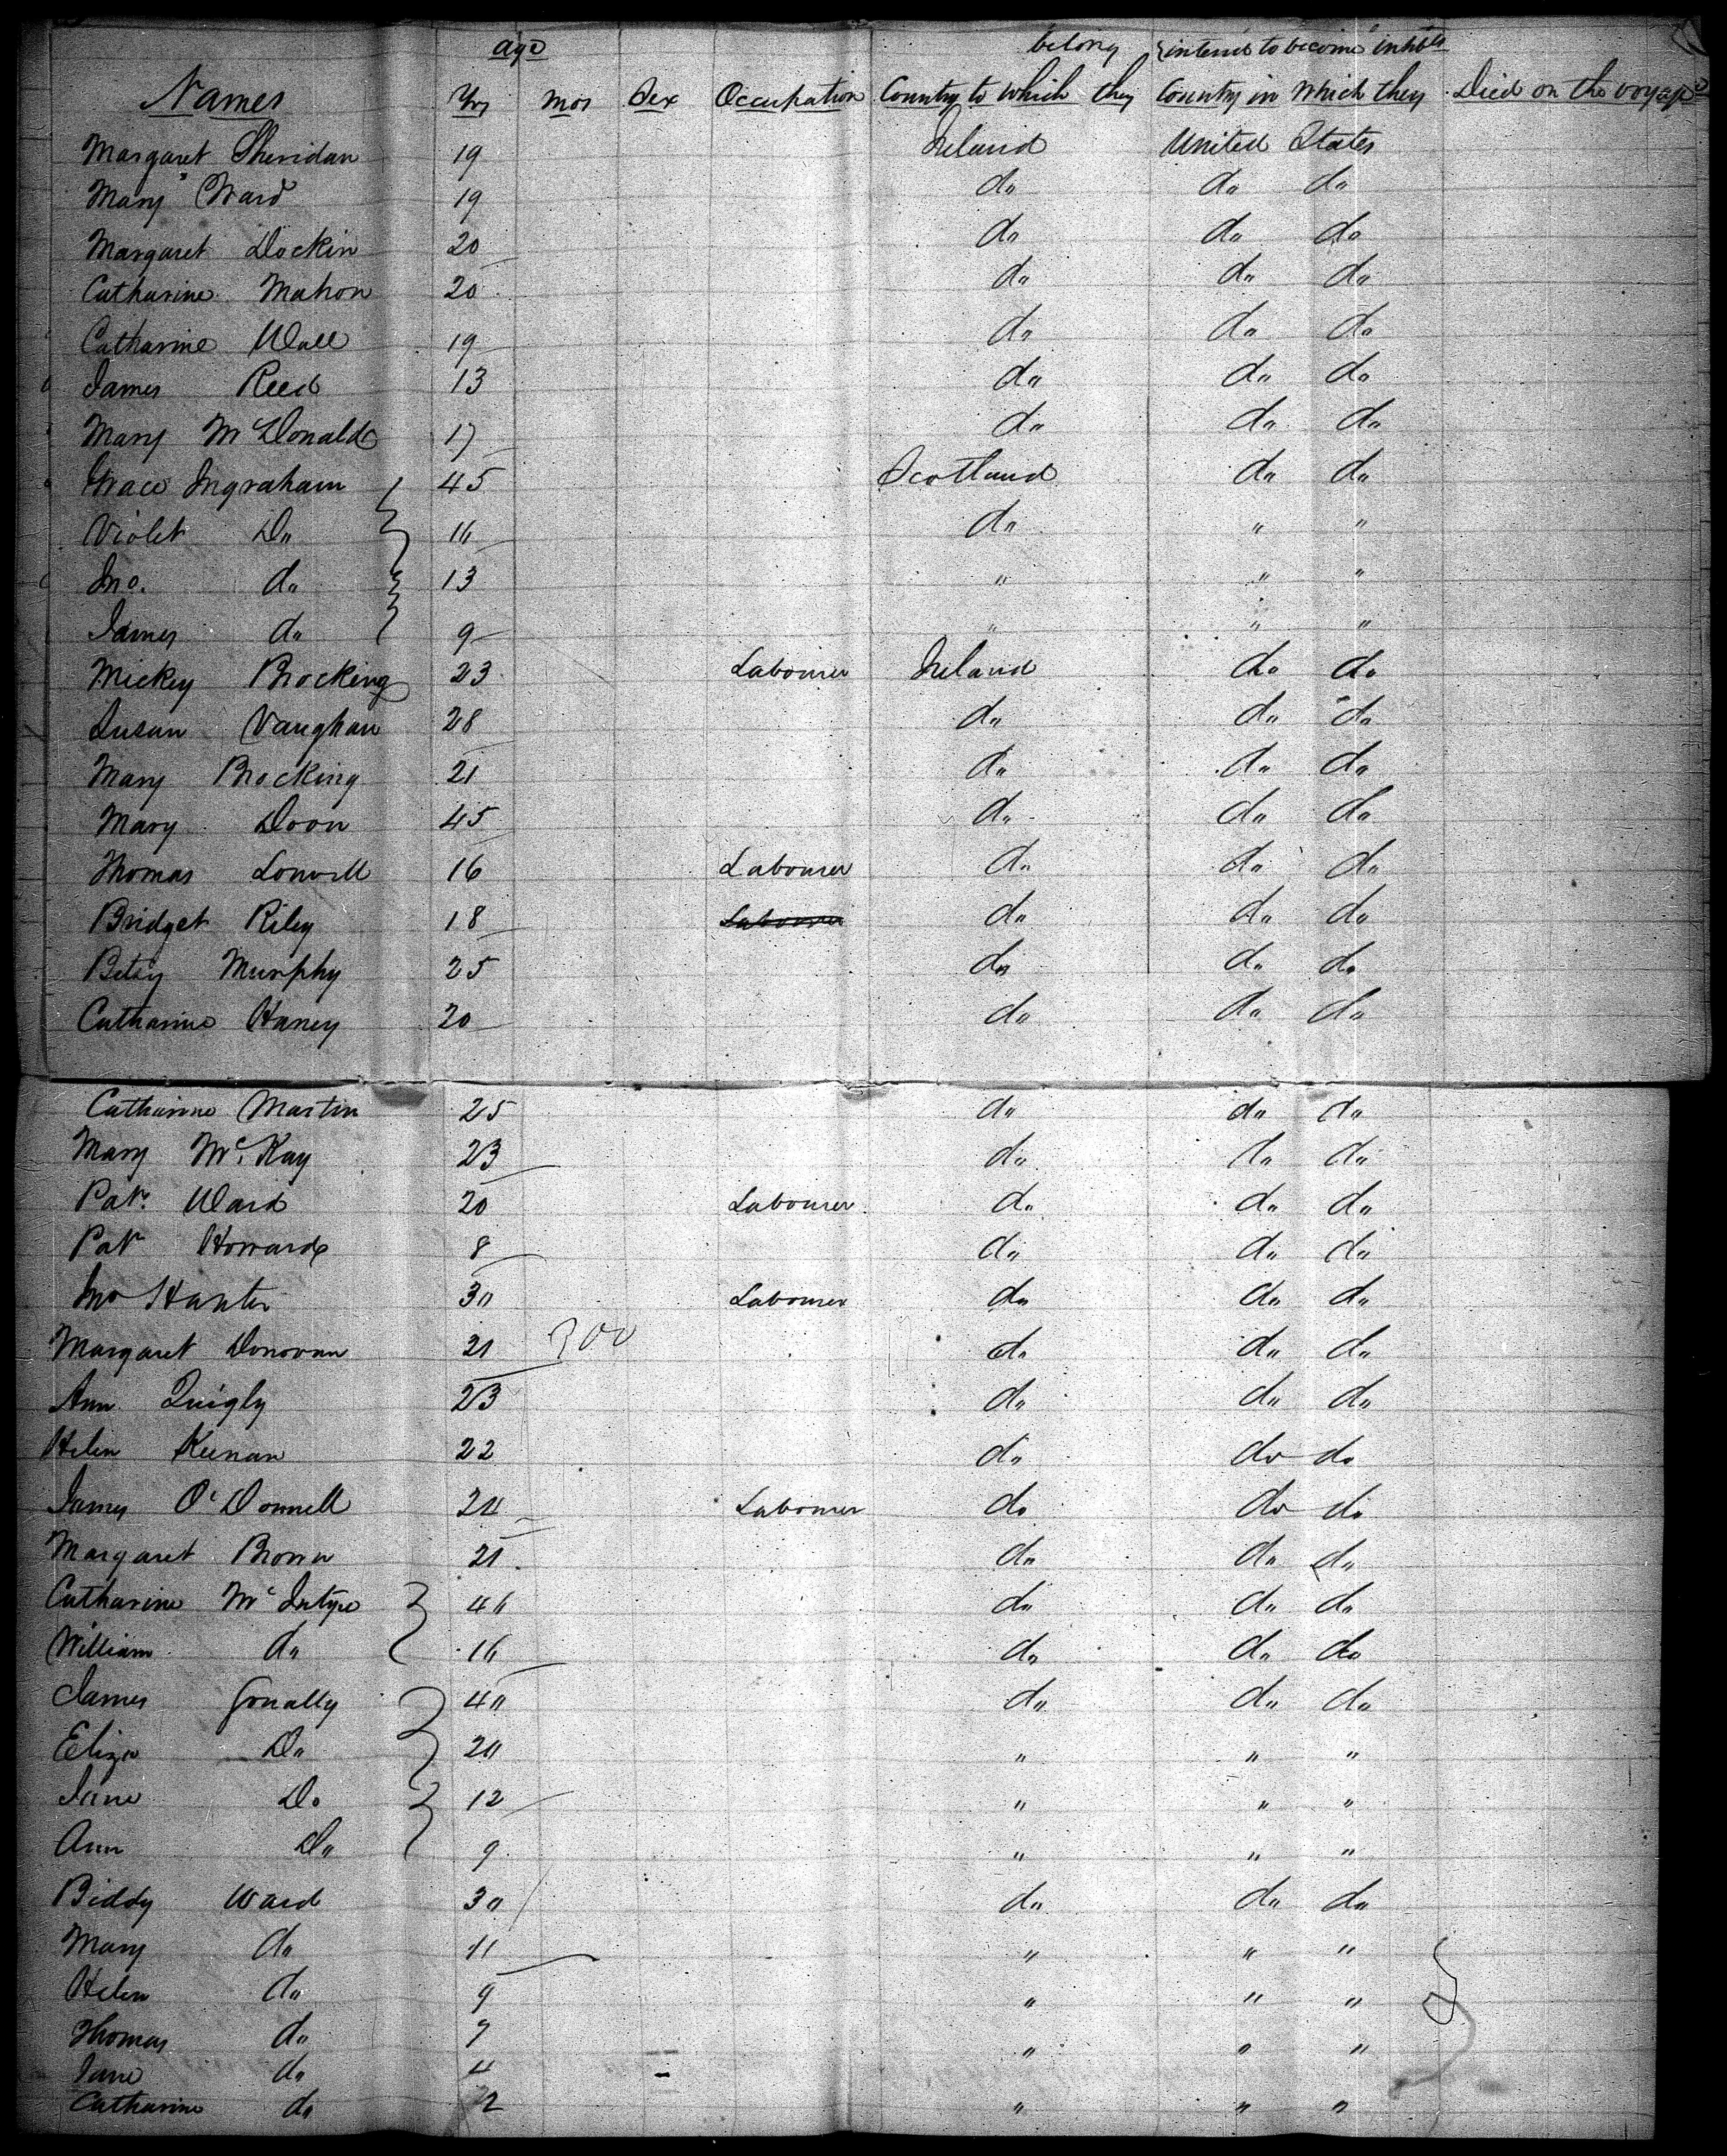 age belong intend to become inhbts
Names Yrs mos Sex Occupation Country to which they Country in which they Died on the voyage
Margaret Sheridan 19 Ireland United States
Mary Ward 19 do do do
Margaret Dockin 20 do do do
Catharine Mahon 20 do do do
Catharine Wall 19 do do do
James Reed 13 do do do
Mary McDonald 17 do do do
Grace Ingraham 45 Scotland do do
Violet Do 16 do " "
Jno. do 13 " " "
James do 9 " " "
Mickey Brocking 23 Labourer Ireland do do
Susan Vaughan 28 do do do
Mary Brocking 21 do do do
Mary Doon 45 do do do
Thomas 16 Labourer do do do
Bridget Riley 18 Labourer do do do
Betsy Murphy 25 do do do
Catharine Haney 20 do do do
Catharine Martin 25 do do do
Mary McKay 23 do do do
Pat. Ward 20 Labourer do do do
Pat Howard 8 do do do
Jno Hunter 30 Labourer do do do
Margaret Donovan 21 300 do do do
Ann Quigly 23 do do do
Helen Keenan 22 do do do
James O'Donnell 20 Labourer do do do
Margaret Brown 21 do do do
Catharine McIntyre 40 do do do
William do 16 do do do
James Gonally 40 do do do
Eliza Do 20 " " "
Jane Do 12 " " "
Ann Do 9 " " "
Biddy Ward 30 do do do
Mary do 11 " " "
Helen do 9 " " "
Thomas do 7 " " "
Jane do 4
Catharine do 2 " " "